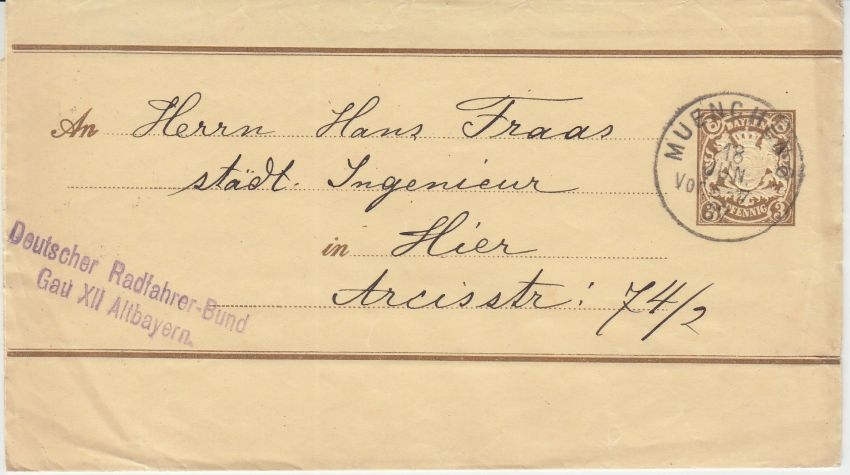 An Herrn Hans Fraas
städt. Ingenieur
in Hier
Arcisstr: 74/2
Deutscher Radfahrer-Bund
Gau XII Altbayern.
MUENCHEN
18
JUN
PFENNIG
3